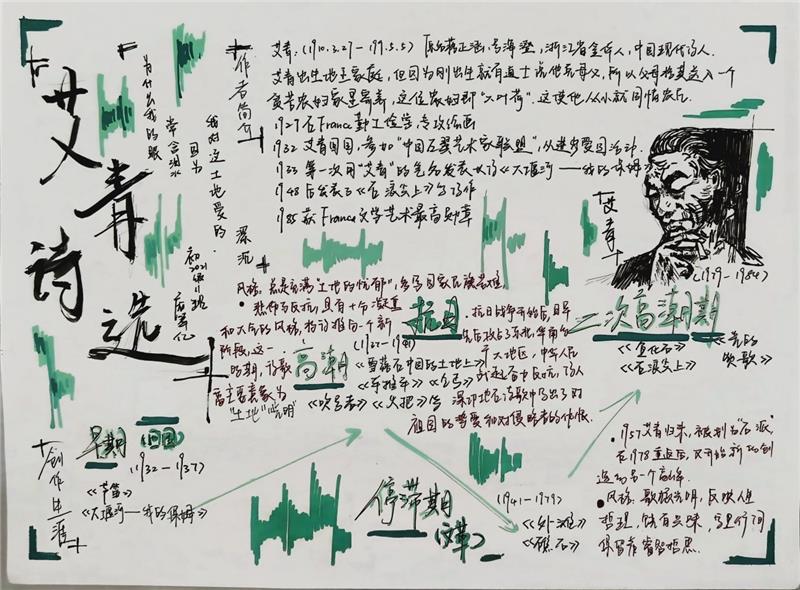 艾青诗选
为什么我的眼
常含泪水
因为
我对这土地爱的
深沉
初2021级11班
作者简介
艾青:(1910.3.27-1996.5.5) 原名蒋正涵,号海澄,浙江省金华人,中国现代诗人.
艾青出生地主家庭,但因为刚出生就有道士说他克母父,所以父母将其送入一个
贫苦农妇家里寄养,这位农妇即"大叶荷".这使他从小就同情农民
1929 在France勤工俭学,专攻绘画
1932 艾青回国,参加"中国左翼艺术家联盟",从进步爱国活动.
1933 第一次用"艾青"的笔名发表长诗《大堰河——我的保姆》
1948 后发表了《在浪尖上》等诗作
1985 获France文学艺术最高勋章
艾青
风格:总是充满"土地的忧郁",多写国家民族苦难
悲怆与反抗,具有十分凝重
和大气的风格,将诗推向一个新
阶段,这一
时期,诗歌
富主要意象为
"土地""光明"
高潮
抗日
(1937-1941)
《雪落在中国的土地上》
《手推车》《乞丐》
《吹号者》《火把》等
.抗日战争开始后,日军
先后攻占了东北,华南等
于大地区,中华人民
深切地在诗歌中写出了对
祖国的挚爱和对侵略者的仇恨.
二次高潮期
(1979-1984)
《鱼化石》
《光的
赞歌》
《在浪尖上》
•1957艾青归来,被划为"右派",
在1978重返后,又开始新的创
造的另一个高峰.
•风格:歌颂光明,反映人生
哲理,饶有兴味,字里行间
保留着睿智哲思.
创作生涯
早期(回国)
(1932-1937)
《芦笛》
《大堰河—我的保姆》
停滞期
(文革)
(1941-1979)
《外滩》
《礁石》